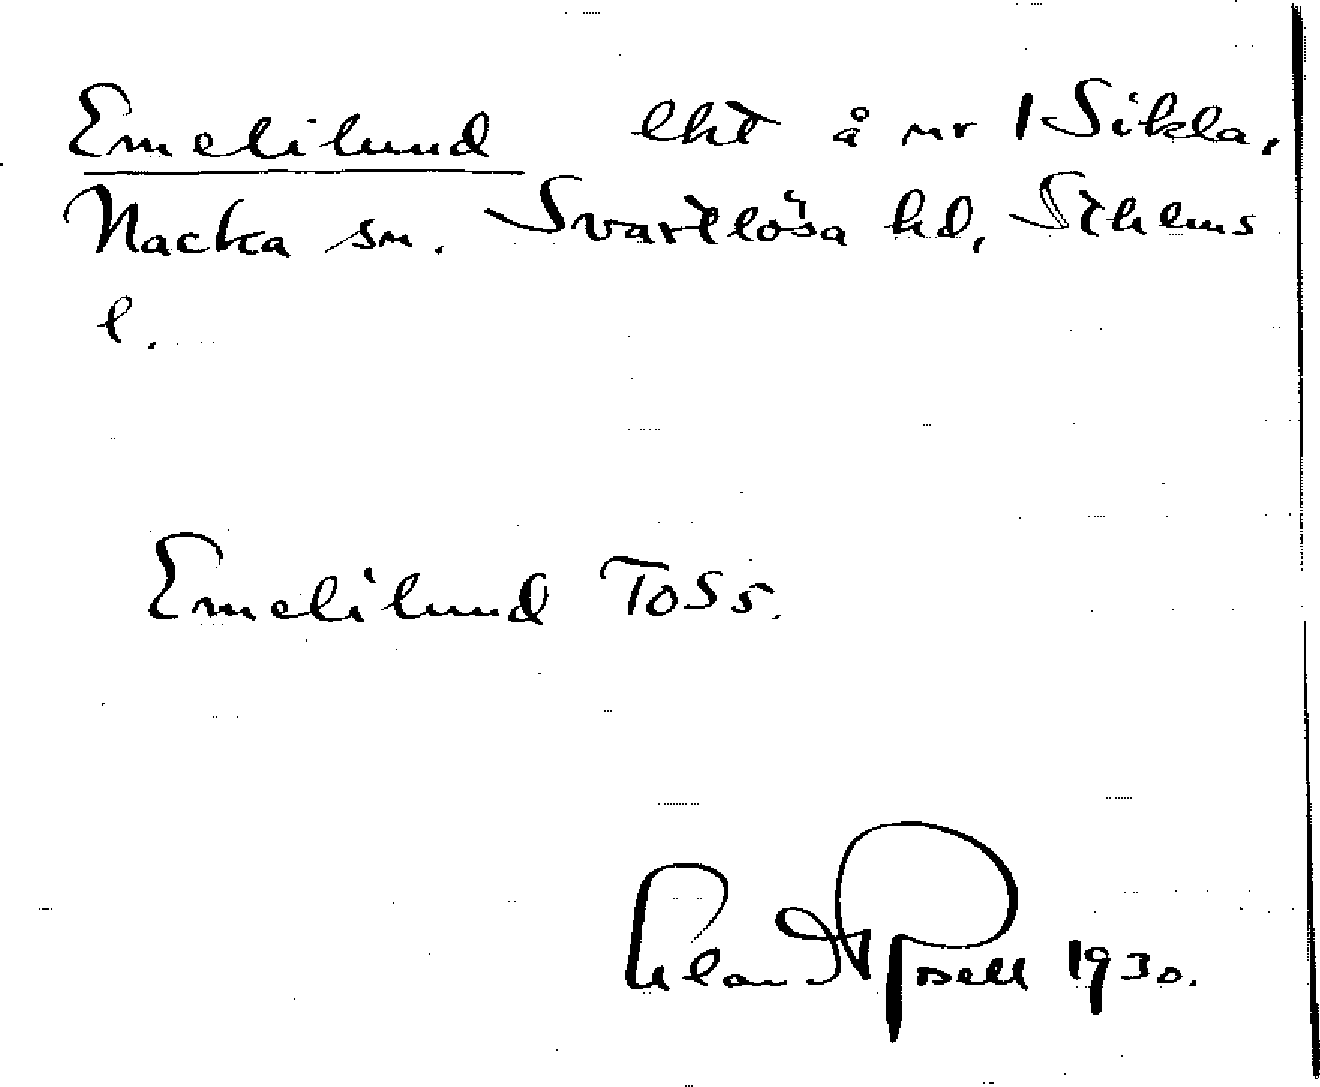 Emelilund lht å nr 1 Sikla,
Nacka sn. Svartlösa hd, Sthlms
l.
Emelilund ToS5.
Rosell 1930.